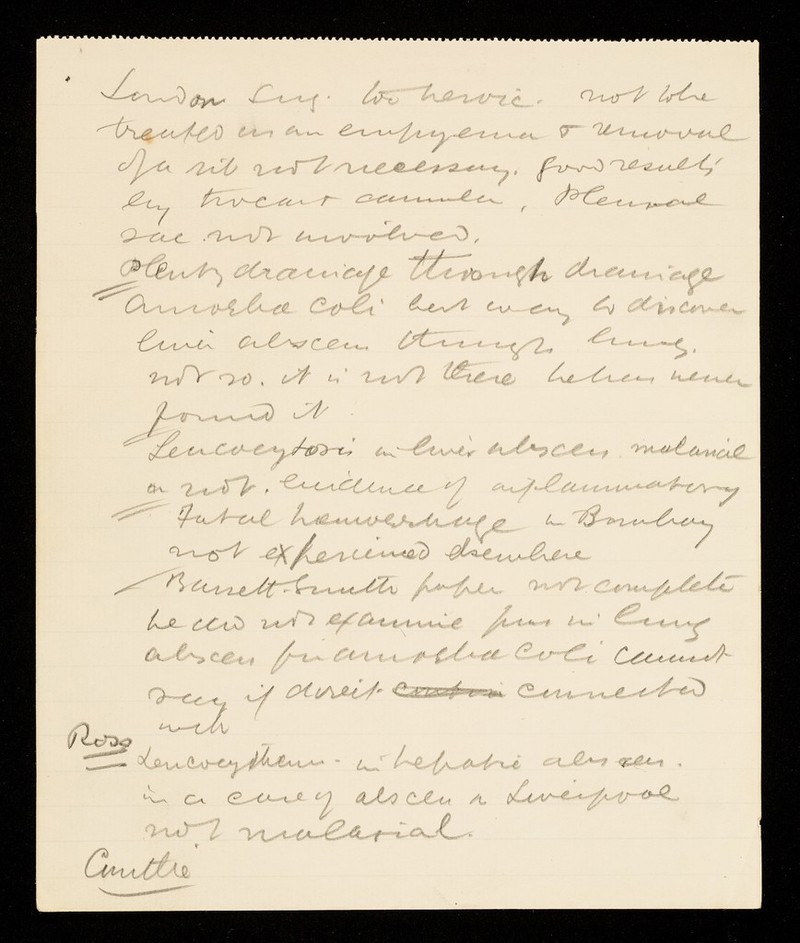 London Surg. too heroic. not to be
treated as an empyema & removal
of a rib not necessary. good results
by trocar & cannula, Pleural
sac not involved.
Plenty drainage through drainage
Amoeba coli best way to discover
liver abscess through lung.
not so. it is not there he has never
found it
Leucocytosis in liver abscess malarial
or not. Evidence of inflammatory
Fatal haemorrhage in Bombay
not experienced elsewhere
Bassett-Smith paper not complete
he did not examine pus in lung
abscess for amoeba coli cannot
say if direct connected
with
Ross
Leucocythem- in hepatic abscess.
in a case of abscess in Liverpool
not malarial.
Cantlie